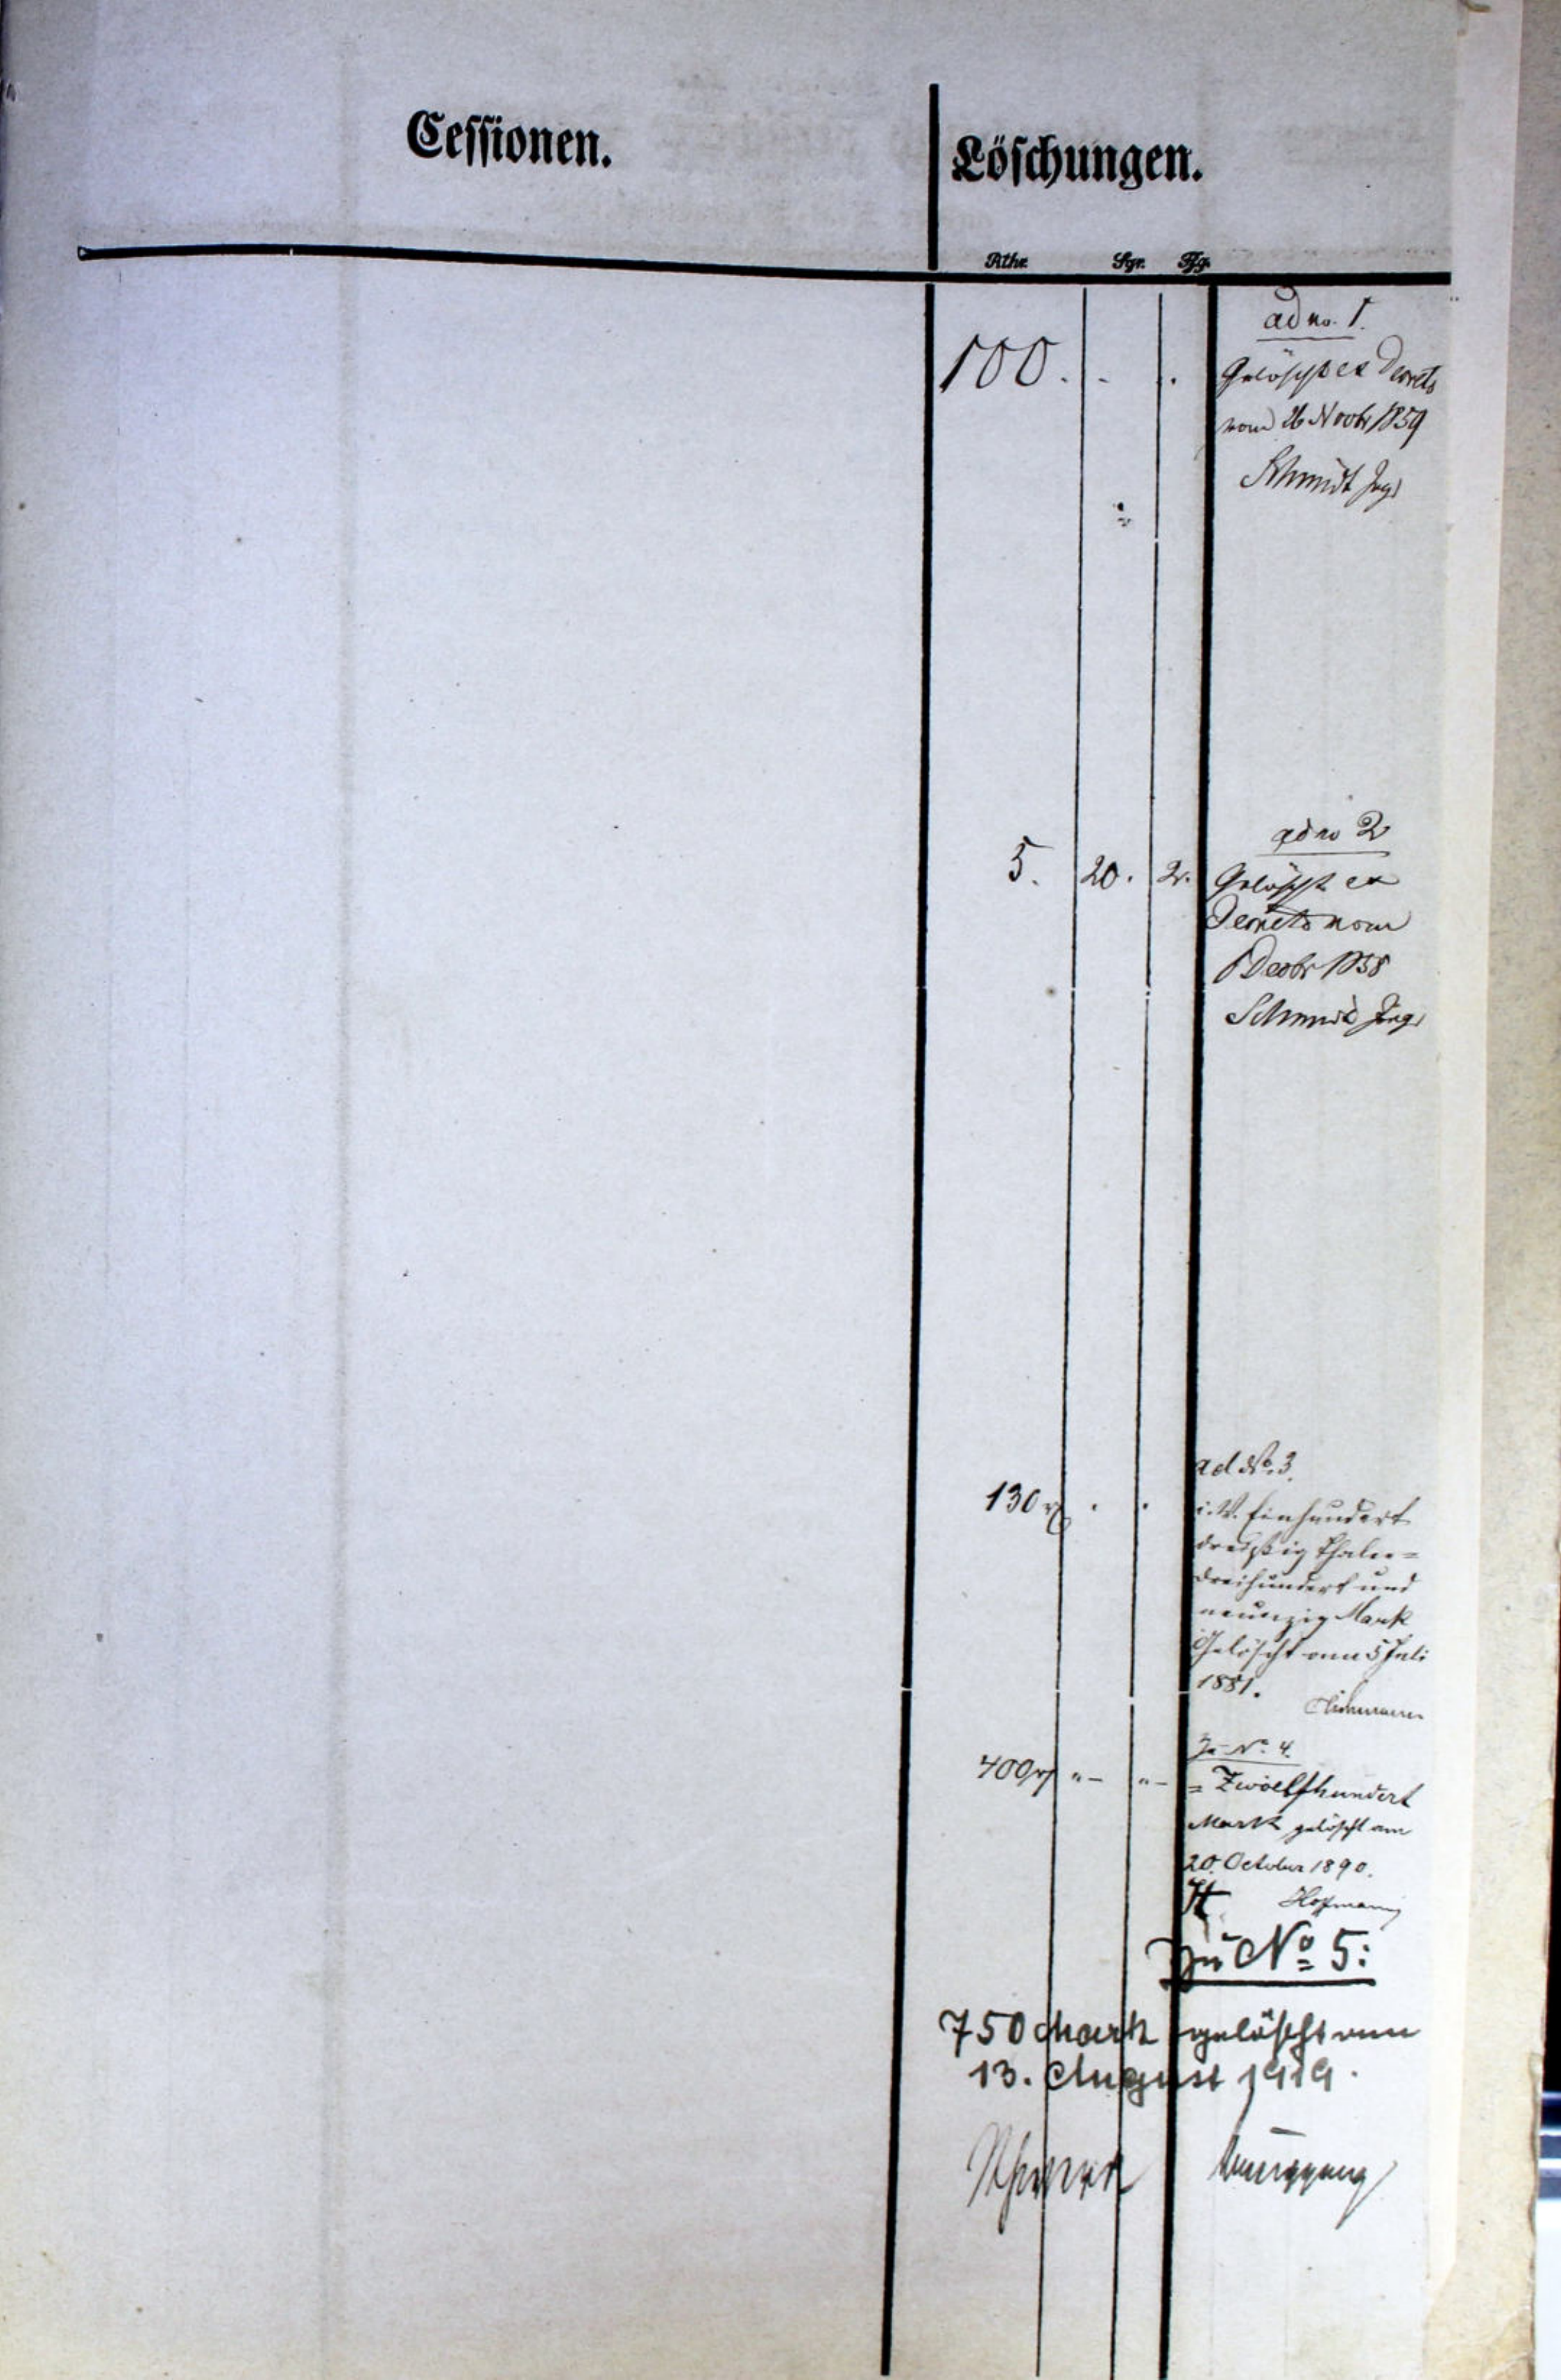 Cessionen.
Löschungen.
Rthr. Sgr. Pfg.
ad no. 1.
100. - .
Gelöscht ex Decreto
vom 26 Novbr 1859
Schmidt
ad no 2
5. 20. 2.
Gelöscht ex
Decreto vom
Decbr 1858
Schmidt
ad No. 3.
130 . .
i. W. Einhundert
dreißig Thaler =
dreihundert und
neunzig Mark
Gelöscht am 5 Juli
1881.
Zu No. 4.
400 "- "-
= Zwoelfhundert
Mark gelöscht am
20. October 1890.
Hofmann
Zu No 5:
750 Mark gelöscht am
13. August 1919.